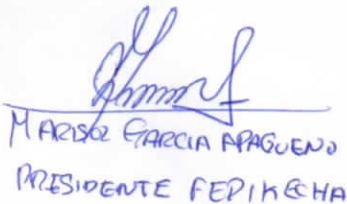 MARISOL GARCIA APAGUENO
PRESIDENTE FEPIKECHA